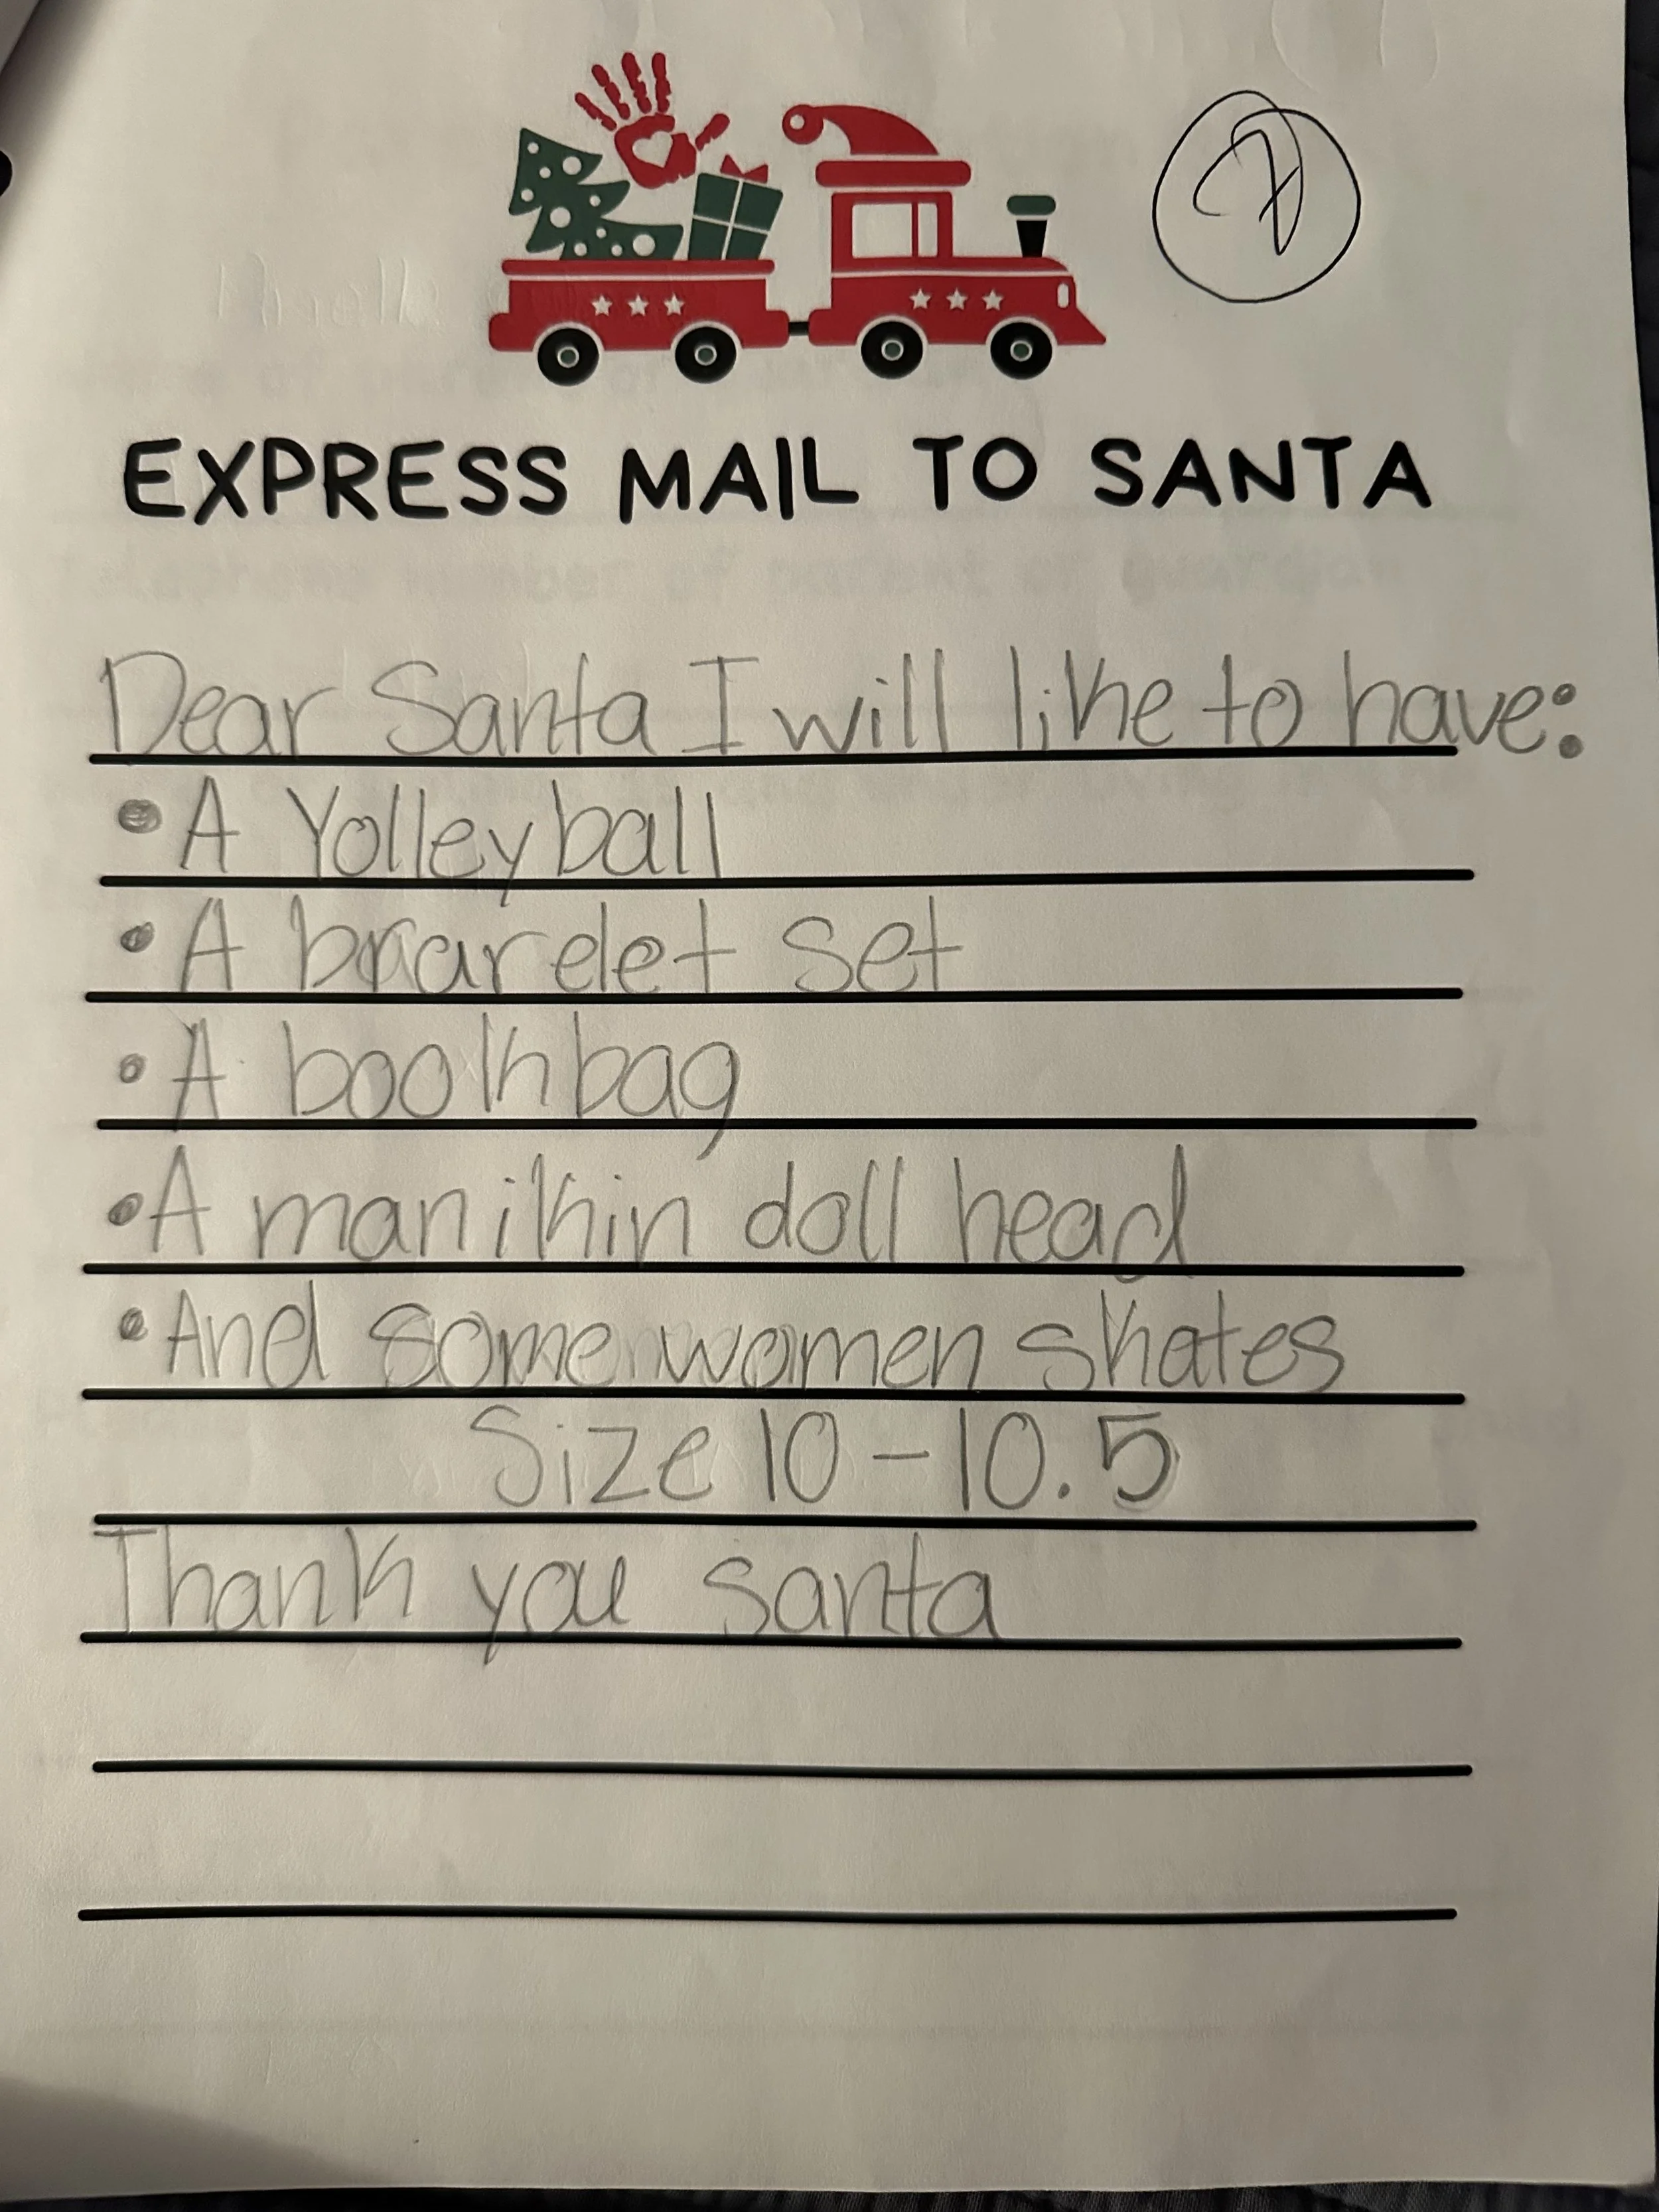 7
EXPRESS MAIL TO SANTA
Dear Santa I will like to have:
• A Volleyball
• A brarelet set
• A bookbag
• A manikin doll head
• And some women skates
Size 10 - 10.5
Thank you santa